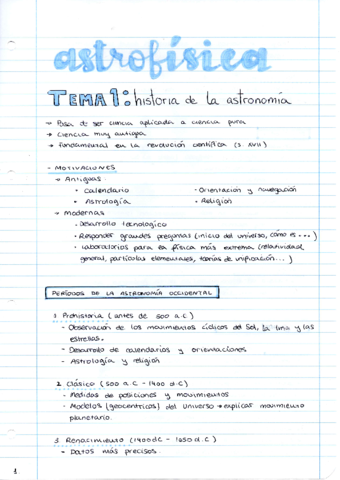 astrofísica
TEMA 1: historia de la astronomía
→ Pasa de ser ciencia aplicada a ciencia pura
→ Ciencia muy antigua
→ fundamental en la revolución científica (s. XVII)
- MOTIVACIONES
→ Antiguas
• Calendario • Orientación y navegación
• Astrología • Religión
→ Modernas
• Desarrollo tecnológico
• Responder grandes preguntas (inicio del universo, cómo es...)
• Laboratorios para la física más extrema (relatividad
general, partículas elementales, teorías de unificación...)
PERÍODOS DE LA ASTRONOMÍA OCCIDENTAL
1. Prehistoria (antes de 500 a.C)
- Observación de los movimientos cíclicos del Sol, la luna y las
estrellas.
- Desarrollo de calendarios y orientaciones
- Astrología y religión
2. Clásico (500 a.C - 1400 d.C)
- Medidas de posiciones y movimientos
- Modelos (geocéntricos) del universo → explicar movimiento
planetario.
3. Renacimiento (1400 d.C - 1650 d.C)
- Datos más precisos.
1